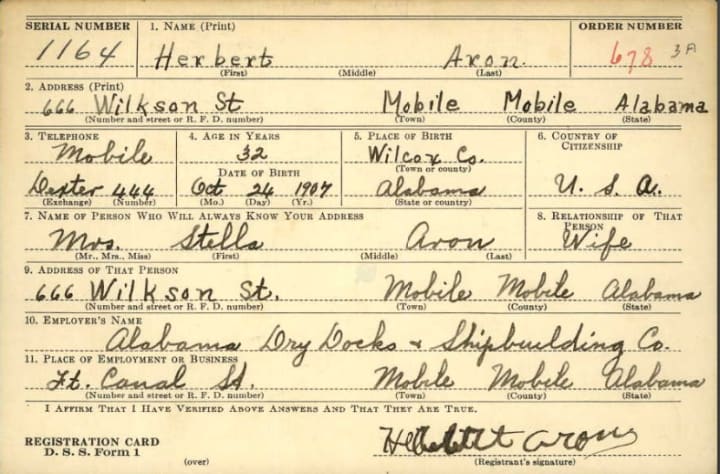 SERIAL NUMBER 1. NAME (Print) ORDER NUMBER
1164 Herbert Aron. 678 3A
(First) (Middle) (Last)
2. ADDRESS (Print)
666 Wilkson St Mobile Mobile Alabama
(Number and street or R. F. D. number) (Town) (County) (State)
3. TELEPHONE 4. AGE IN YEARS 5. PLACE OF BIRTH 6. COUNTRY OF CITIZENSHIP
Mobile 32 Wilcox Co.
DATE OF BIRTH (Town or county)
Dexter 444 Oct 24 1907 Alabama U. S. A.
(Exchange) (Number) (Mo.) (Day) (Yr.) (State or country)
7. NAME OF PERSON WHO WILL ALWAYS KNOW YOUR ADDRESS 8. RELATIONSHIP OF THAT PERSON
Mrs. Stella Aron Wife
(Mr., Mrs., Miss) (First) (Middle) (Last)
9. ADDRESS OF THAT PERSON
666 Wilkson St. Mobile Mobile Alabama
(Number and street or R. F. D. number) (Town) (County) (State)
10. EMPLOYER'S NAME
Alabama Dry Docks & Shipbuilding Co.
11. PLACE OF EMPLOYMENT OR BUSINESS
Ft. Canal St. Mobile Mobile Alabama
(Number and street or R. F. D. number) (Town) (County) (State)
I AFFIRM THAT I HAVE VERIFIED ABOVE ANSWERS AND THAT THEY ARE TRUE.
REGISTRATION CARD
D. S. S. Form 1 (over) Aron
(Registrant's signature)